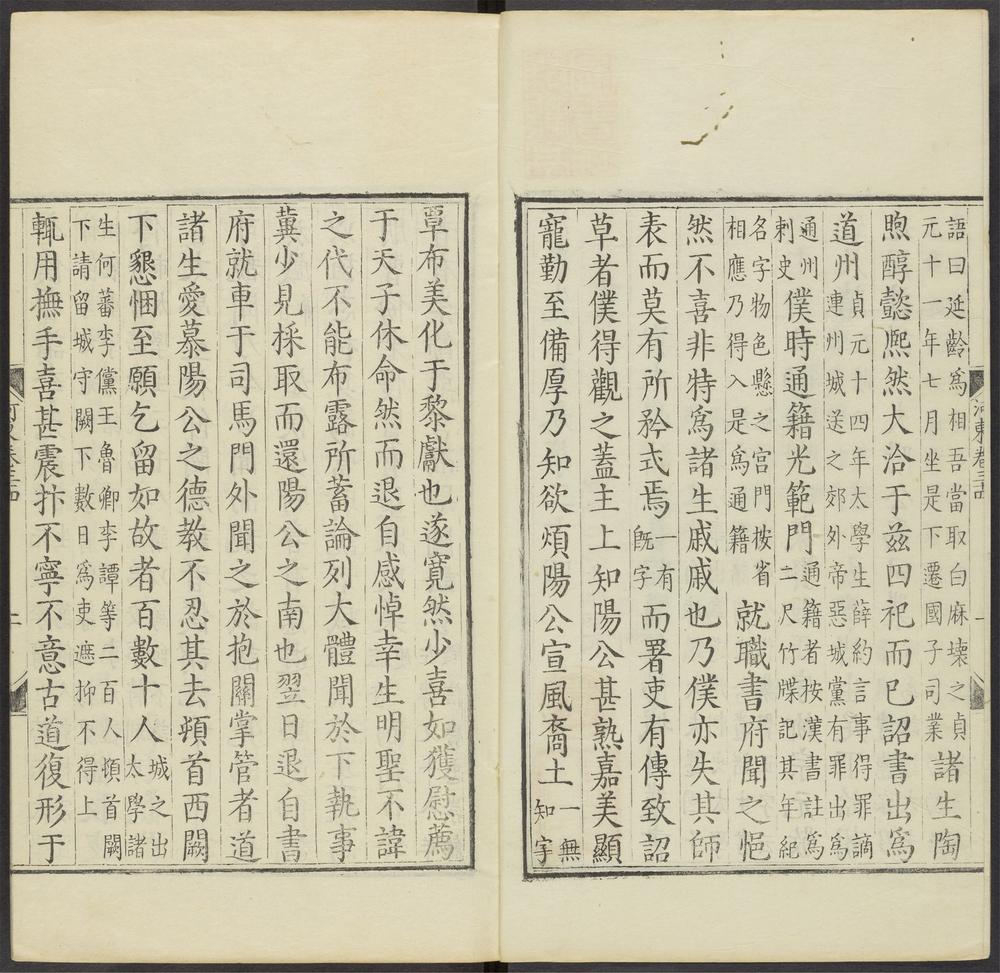 語曰延齡為相吾當取白麻壞之貞
元十一年七月坐是下遷國子司業諸生陶
煦醇懿熈然大洽于兹四祀而已詔書出為
道州貞元十四年太學生薛約言事得罪謫
連州城送之郊外帝惡城黨有罪出為
通州刺史僕時通籍光範門通籍者按漢書註為
二尺竹牒記其年紀
名字物色懸之宫門按省
相應乃得入是為通籍就職書府聞之悒
然不喜非特為諸生戚戚也乃僕亦失其師
表而莫有所矜式焉一有
旣字而署吏有傳致詔
草者僕得觀之蓋主上知陽公甚熟嘉美顯
寵勤至備厚乃知欲煩陽公宣風裔土一無
知字
覃布美化于黎獻也遂寛然少喜如獲慰薦
于天子休命然而退自感悼幸生明聖不諱
之代不能布露所蓄論列大體聞於下執事
冀少見採取而還陽公之南也翌日退自書
府就車于司馬門外聞之於抱關掌管者道
諸生愛慕陽公之德教不忍其去頓首西闕
下懇悃至願乞留如故者百數十人城之出
太學諸
生何蕃李儻王魯卿李譚等二百人頓首闕
下請留城守闕下數日為吏遮抑不得上
輒用撫手喜甚震抃不寧不意古道復形于
河東卷三十四
一